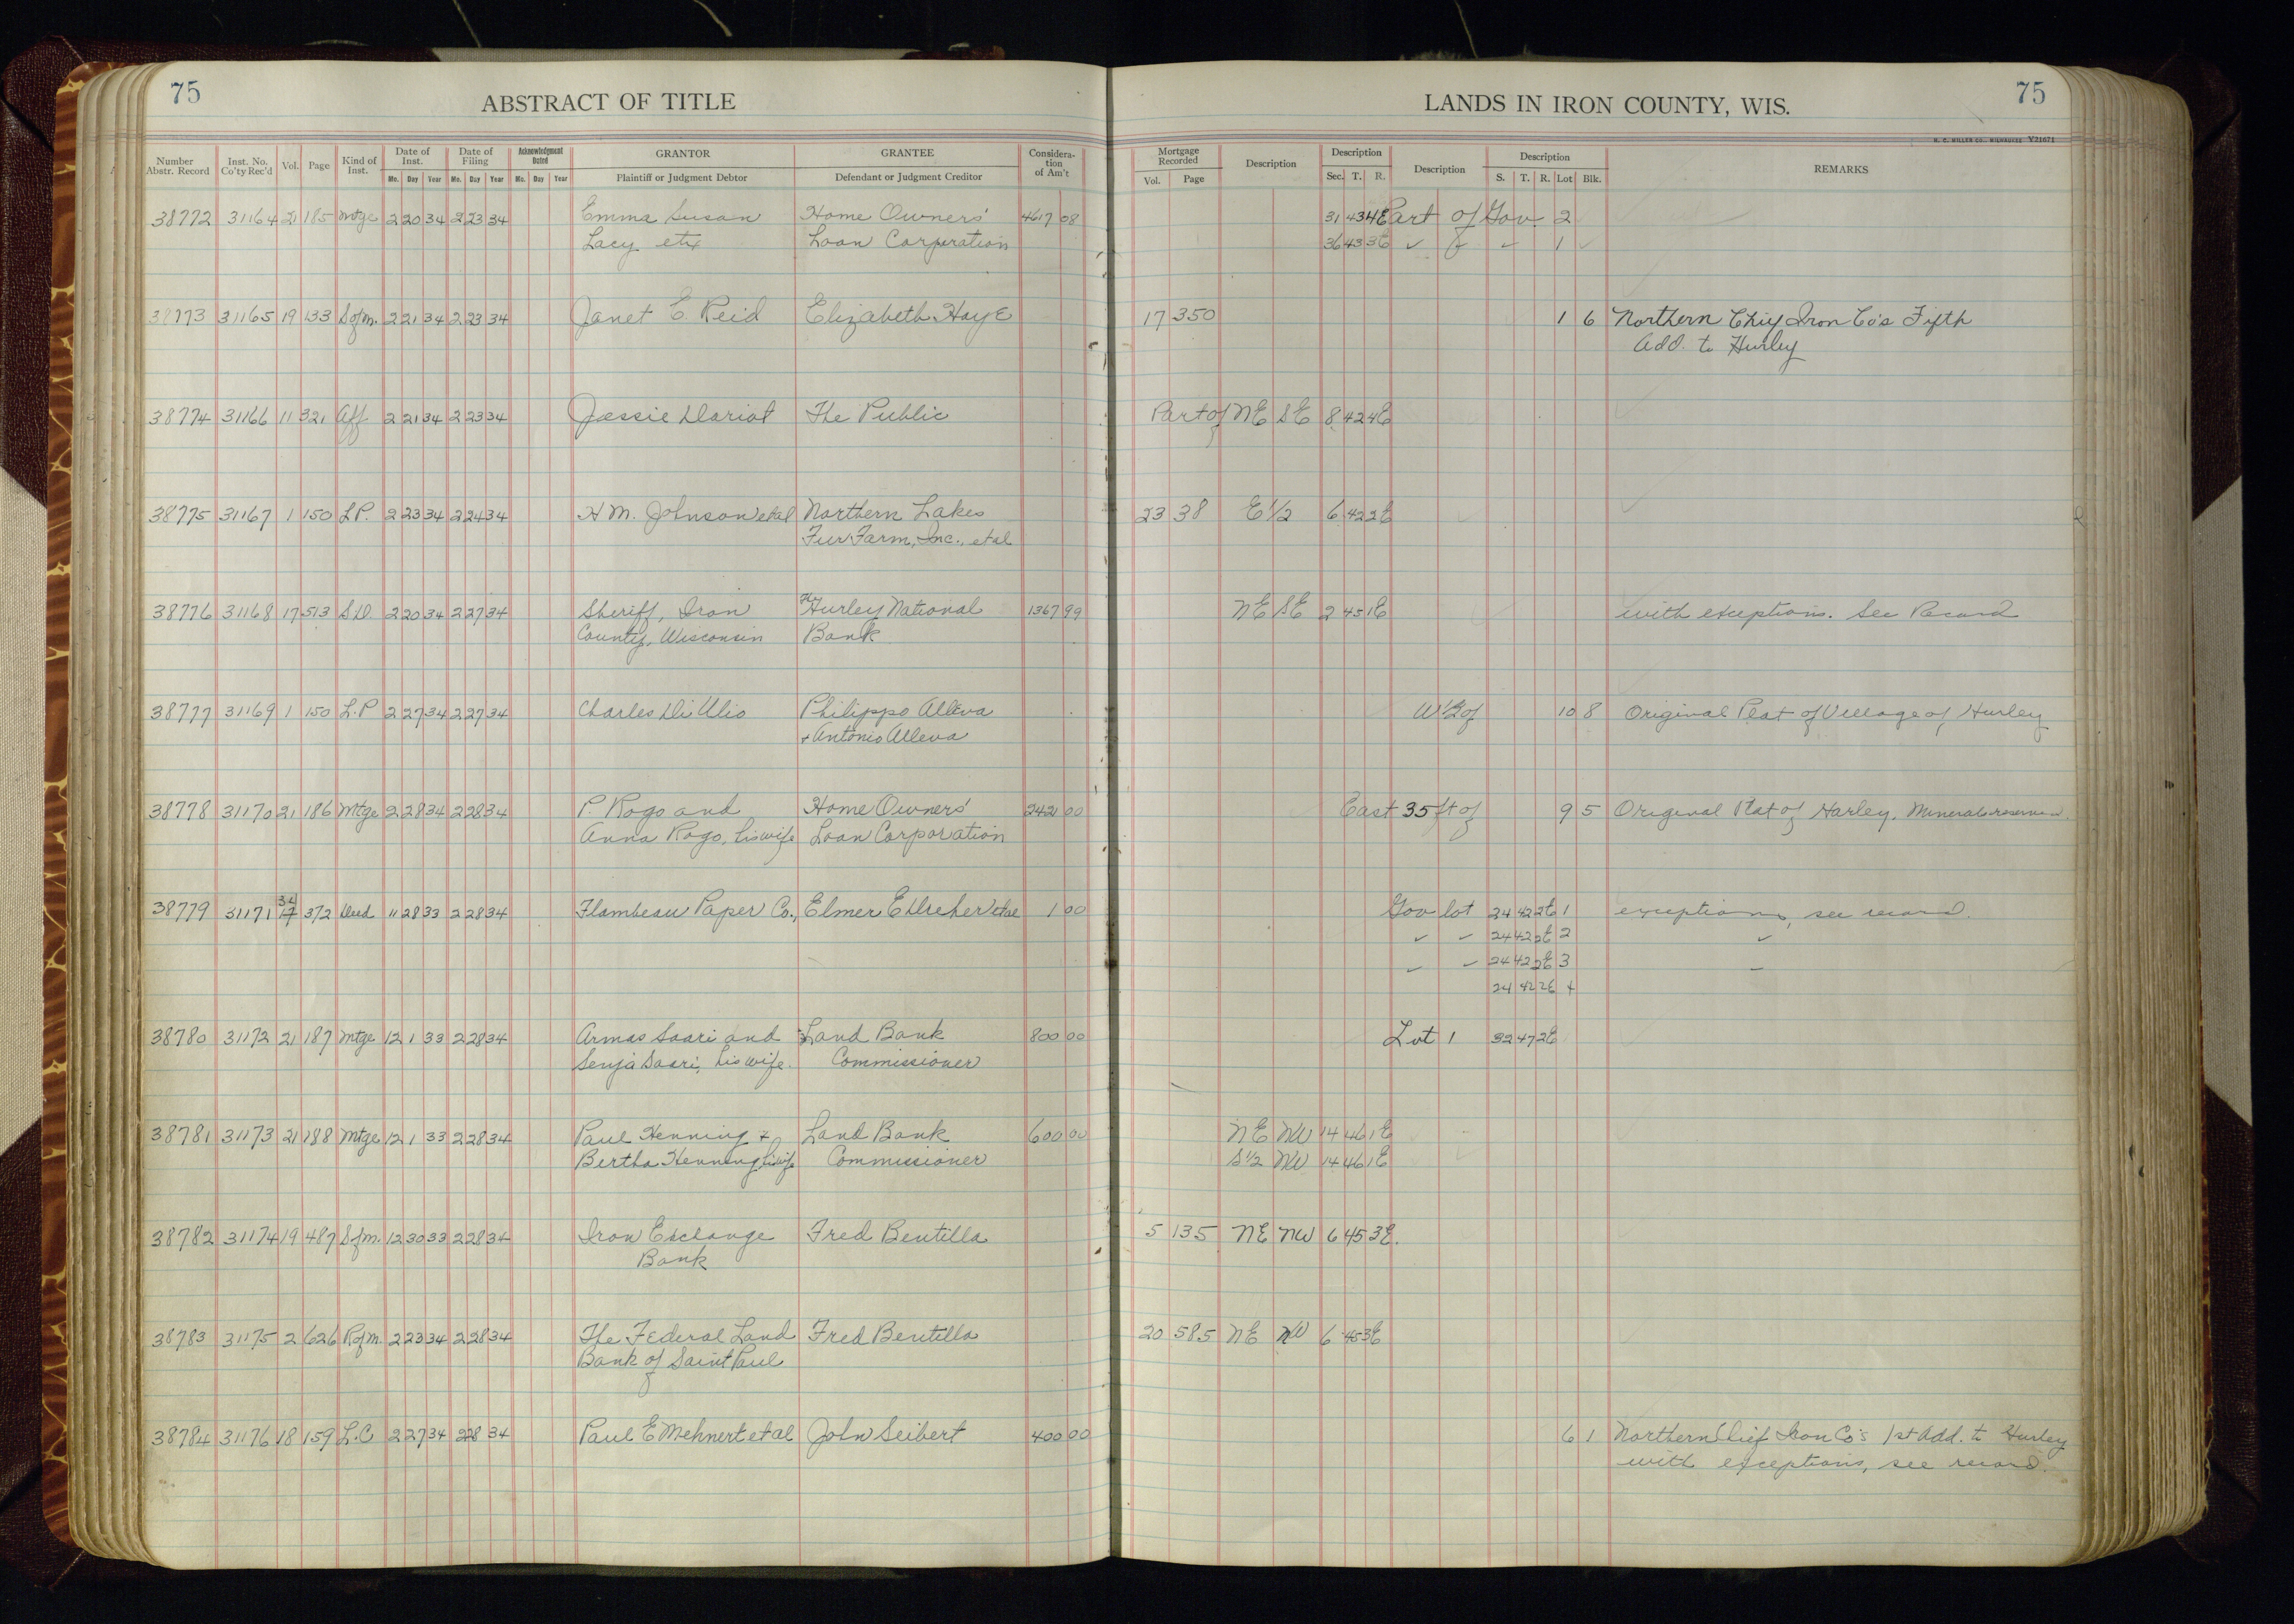 75
ABSTRACT OF TITLE
LANDS IN IRON COUNTY, WIS.
75
H. C. MILLER CO., MILWAUKEE V21671
Number Abstr. Record | Inst. No. Co'ty Rec'd | Vol. | Page | Kind of Inst. | Date of Inst. Mo. Day Year | Date of Filing Mo. Day Year | Acknowledgment Dated Mo. Day Year | GRANTOR Plaintiff or Judgment Debtor | GRANTEE Defendant or Judgment Creditor | Consideration of Am't | Mortgage Recorded Vol. Page | Description | Description Sec. T. R. | Description | Description S. T. R. Lot Blk. | REMARKS
38772 31164 21 185 Mtge 2 20 34 2 23 34 Emma Susan Home Owners' 4617 08 31 43 4E Part of Gov. 2
Lacy etx Loan Corporation 36 43 3E ✓ ✓ ✓ 1 ✓
38773 31165 19 133 S of M. 2 21 34 2 23 34 Janet E. Reid Elizabeth Hoye 17 350 1 6 Northern Chief Iron Co's Fifth
Add. to Hurley
38774 31166 11 321 Aff 2 21 34 2 23 34 Jessie Dariot The Public Part of NE SE 8 42 4E
38775 31167 1 150 L P. 2 23 34 2 24 34 H M. Johnson etal Northern Lakes 23 38 E 1/2 6 42 2E
Fur Farm, Inc., etal
38776 31168 17 513 S.D. 2 20 34 2 27 34 Sheriff, Iron The Hurley National 1367 99 NE SE 2 45 1E with exceptions. See Record
County, Wisconsin Bank
38777 31169 1 150 L.P 2 27 34 2 27 34 Charles Di Ulio Philippo Alleva W 1/2 of 10 8 Original Plat of Village of Hurley
+ Antonio Alleva
38778 31170 21 186 Mtge 2 28 34 2 28 34 P. Rogo and Home Owners' 2421 00 East 35 ft of 9 5 Original Plat of Hurley, Minerals reserved.
Anna Rogo, his wife Loan Corporation
34
38779 31171 17 372 Deed 11 28 33 2 28 34 Flambeau Paper Co., Elmer E Dreher etal 1 00 Gov lot 24 42 2E 1 exceptions, see record.
✓ ✓ 24 42 2E 2 ✓
✓ ✓ 24 42 2E 3
24 42 2E 4
38780 31172 21 187 Mtge 12 1 33 2 28 34 Armas Saari and Land Bank 800 00 Lot 1 32 47 2E
Senja Saari, his wife. Commissioner
38781 31173 21 188 Mtge 12 1 33 2 28 34 Paul Henning + Land Bank 600 00 NE NW 14 46 1E
Bertha Henning his wife Commissioner S 1/2 NW 14 46 1E
38782 31174 19 487 S of M. 12 30 33 2 28 34 Iron Exchange Fred Bentilla 5 135 NE NW 6 45 3E.
Bank
38783 31175 2 626 R of M. 2 23 34 2 28 34 The Federal Land Fred Bentilla 20 585 NE NW 6 45 3E
Bank of Saint Paul
38784 31176 18 159 L.C 2 27 34 2 28 34 Paul E Mehnert et al John Seibert 400 00 6 1 Northern Chief Iron Co's 1st Add. to Hurley
with exceptions, see record.